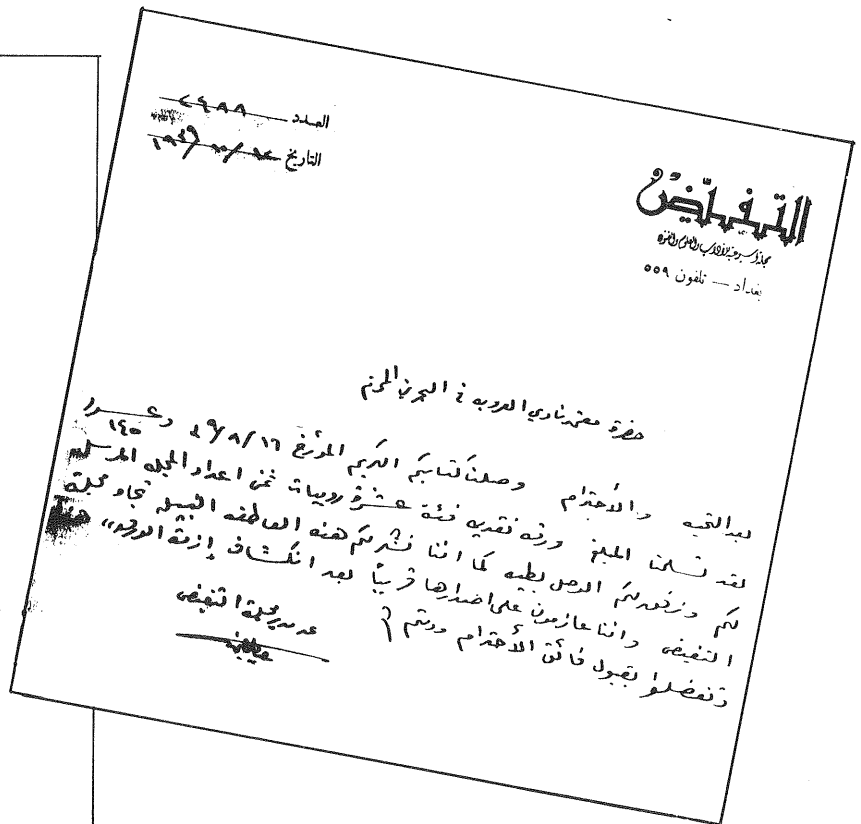 العدد ٢٤٨٨
التاريخ
التفيّض
مجلة اسبوعية للآداب والعلوم والفنون
بغداد — تلفون ٥٥٩
حضرة معتمد نادي العروبه في البحرين المحترم
بعد التحيه والأحترام وصلنا كتابكم الكريم المؤرخ ١٦/٨/٣٩
لقد تسلمنا المبلغ ورقه نقديه فئة عشرة روبيات ثمن اعداد المجله المرسله
لكم ونرفق لكم الوصل بطيه كما اننا نشكركم هذه العاطفه النبيله تجاه مجلة
التفيض واننا عازمون على اصدارها قريباً بعد انكشاف إزمة الورق
وتفضلوا بقبول فائق الأحترام ودمتم
عن مدير مجلة التفيض